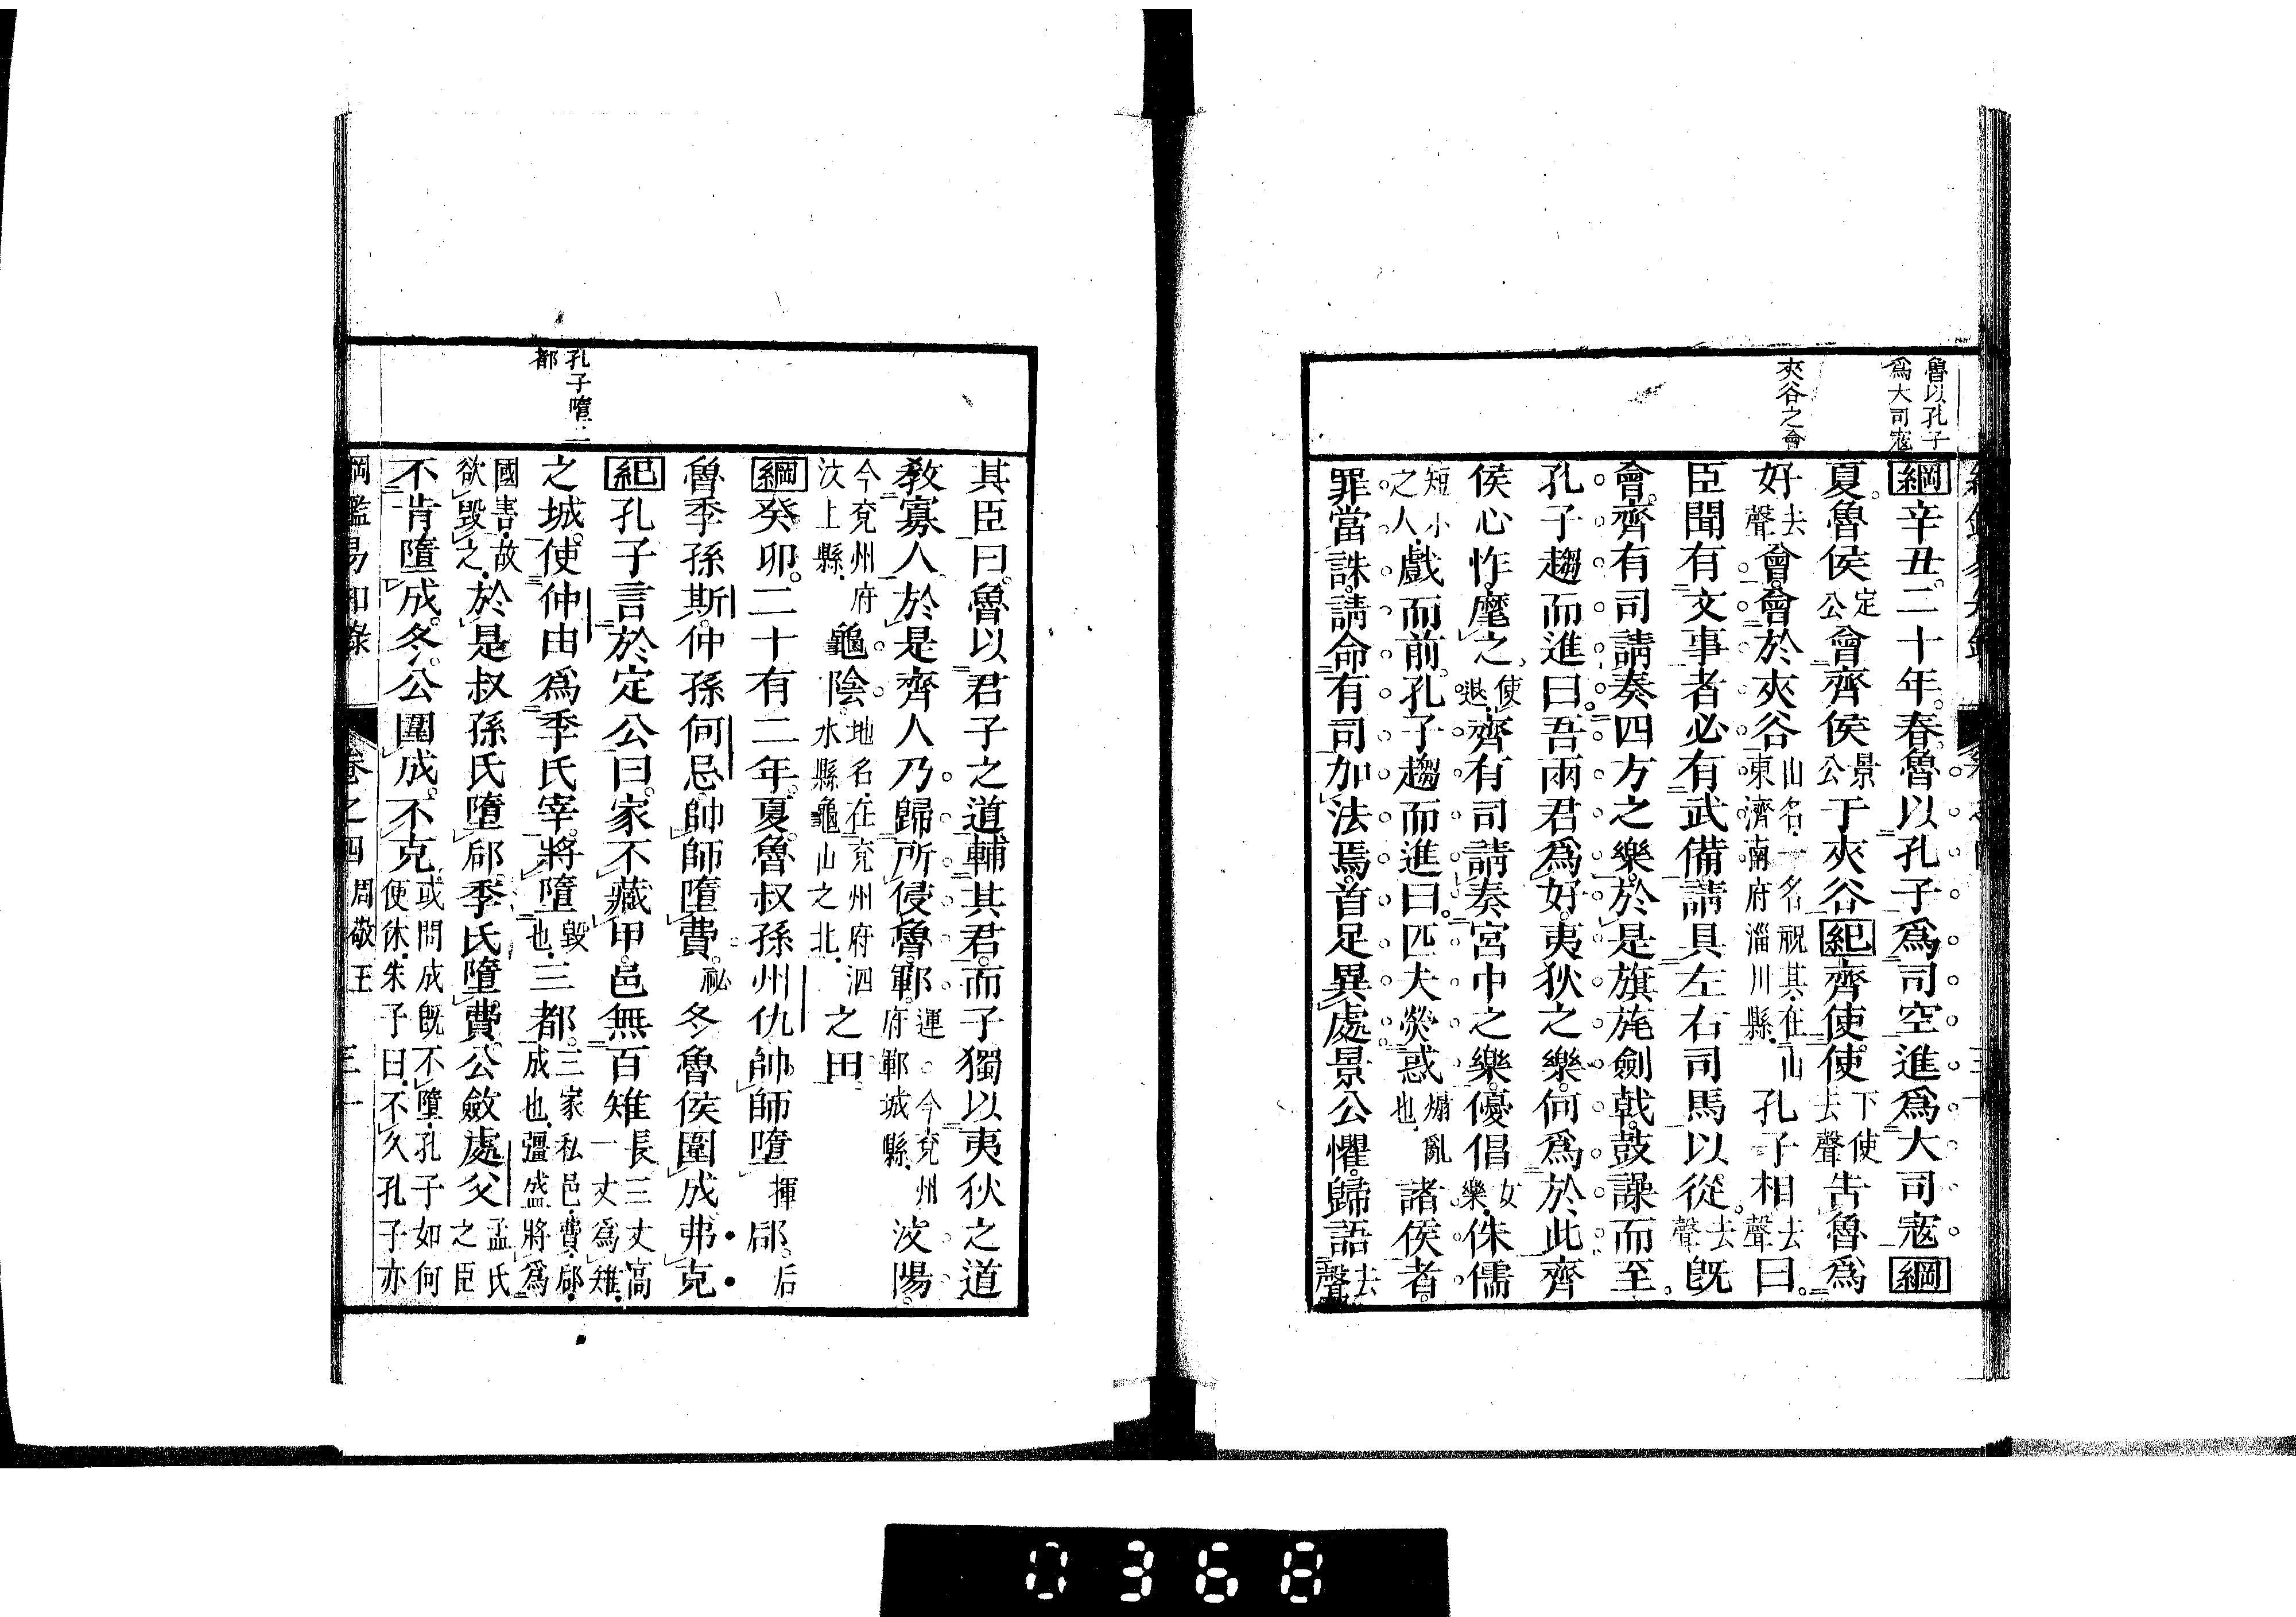 魯以孔子
爲大司寇
夾谷之會
綱辛丑。二十年。春。魯以孔子爲司空進爲大司寇綱
夏。魯侯定公會齊侯景公于夾谷紀齊使。使下使去聲告魯爲
好去聲會。會於夾谷山名。一名祝其。在山東濟南府淄川縣。孔子相去聲曰。
臣聞有文事者必有武備請具左右司馬以從。去聲既
會。齊有司請奏四方之樂。於是旗旄劍戟。鼓譟而至。
孔子趨而進曰。吾兩君爲好。夷狄之樂。何爲於此齊
侯心怍。麾之使退。齊有司請奏宮中之樂。優倡女樂。侏儒
短小之人。戲而前。孔子趨而進曰。匹夫熒惑煽亂也。諸侯者。
罪當誅。請命有司加法焉。首足異處景公懼。歸語去聲
其臣曰。魯以君子之道輔其君。而子獨以夷狄之道
敎寡人於是齊人乃歸所侵魯。鄆。運。今兗州府鄆城縣。汶陽。
今兗州府汶上縣。龜陰。地名。在兗州府泗水縣龜山之北。之田。
綱癸卯。二十有二年。夏。魯叔孫州仇帥師墮揮郈。后
魯季孫斯。仲孫何忌帥師墮費。祕冬魯侯圍成弗克
紀孔子言於定公曰。家不藏甲。邑無百雉長三丈高一丈爲雉。
之城。使仲由爲季氏宰。將墮毀也。三都。三家私邑。費。郈。成也。彊盛將爲
國害。故欲毀之。於是叔孫氏墮郈。季氏墮費。公斂處父孟氏之臣
不肯墮成。冬。公圍成。不克。或問成既不墮。孔子如何便休。朱子曰。不久孔子亦
孔子墮三
都
綱鑑易知錄 卷之四 周敬王